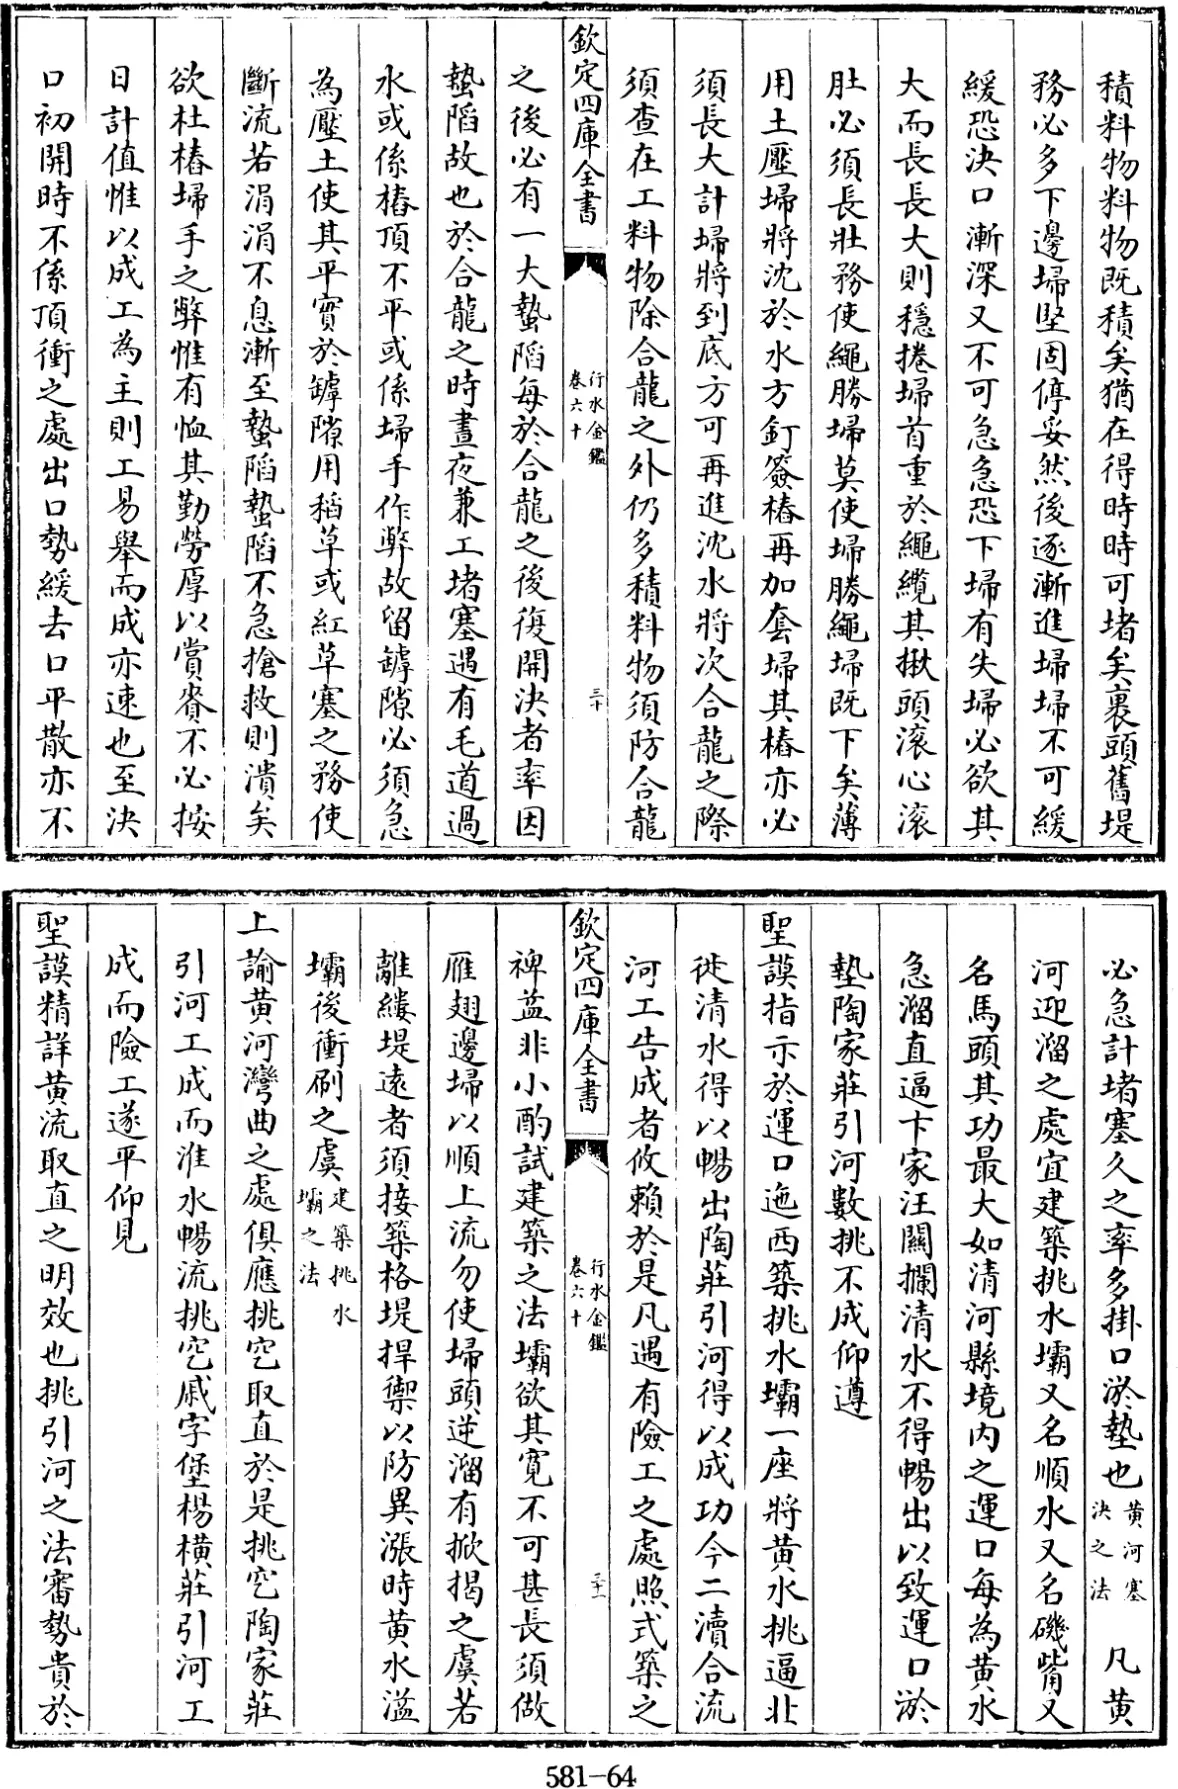 積料物料物既積矣猶在得時時可堵矣裏頭舊堤
務必多下邊埽堅固停妥然後逐漸進埽埽不可緩
緩恐決口漸深又不可急急恐下埽有失埽必欲其
大而長長大則穩捲埽首重於繩纜其揪頭滚心滚
肚必須長壯務使繩勝埽莫使埽勝繩埽既下矣薄
用土壓埽將沈於水方釘簽樁再加套埽其樁亦必
須長大計埽將到底方可再進沈水將次合龍之際
須查在工料物除合龍之外仍多積料物須防合龍
欽定四庫全書
行水金鑑
卷六十
三十
之後必有一大蟄陷每於合龍之後復開決者率因
蟄陷故也於合龍之時晝夜兼工堵塞遇有毛道過
水或係樁頂不平或係埽手作弊故留罅隙必須急
為壓土使其平實於罅隙用稻草或紅草塞之務使
斷流若涓涓不息漸至蟄陷蟄陷不急搶救則潰矣
欲杜樁埽手之弊惟有恤其勤勞厚以賞賚不必按
日計值惟以成工為主則工易舉而成亦速也至決
口初開時不係頂衝之處出口勢緩去口平散亦不
必急計堵塞久之率多掛口淤墊也黃河塞決之法 凡黃
河迎溜之處宜建築挑水壩又名順水又名磯觜又
名馬頭其功最大如清河縣境內之運口每為黃水
急溜直逼卞家汪闗攔清水不得暢出以致運口淤
墊陶家莊引河數挑不成仰遵
聖謨指示於運口迤西築挑水壩一座將黃水挑逼北
徙清水得以暢出陶莊引河得以成功今二瀆合流
河工告成者攸賴於是凡遇有險工之處照式築之
欽定四庫全書
行水金鑑
卷六十
三十一
裨益非小酌試建築之法壩欲其寬不可甚長須做
雁翅邊埽以順上流勿使埽頭逆溜有掀揭之虞若
離縷堤遠者須接築格堤捍禦以防異漲時黃水溢
壩後衝刷之虞建築挑水壩之法
上諭黃河灣曲之處俱應挑挖取直於是挑挖陶家莊
引河工成而淮水暢流挑挖戚字堡楊橫莊引河工
成而險工遂平仰見
聖謨精詳黃流取直之明效也挑引河之法審勢貴於
581-64